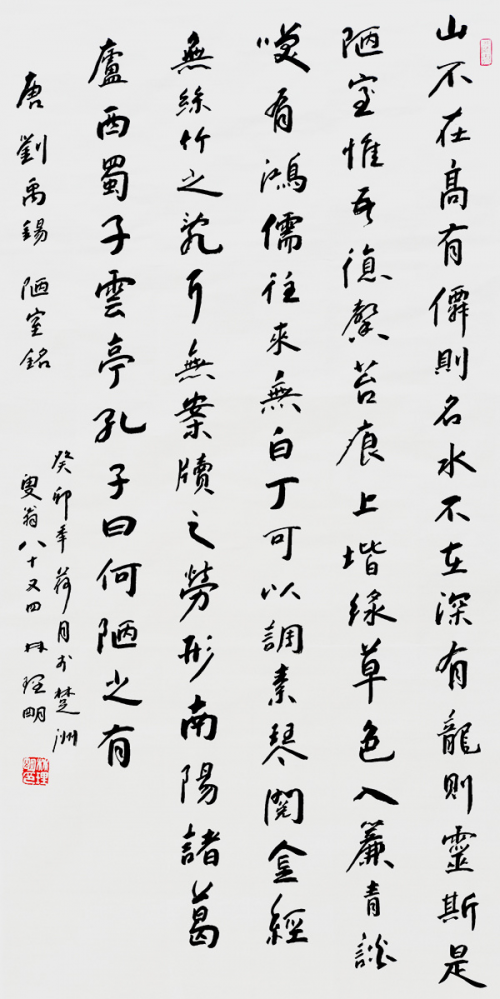 山不在高有僊則名水不在深有龍則靈斯是
陋室惟吾德馨苔痕上堦綠草色入簾青談
咲有鴻儒往來無白丁可以調素琴閱金經
無絲竹之亂耳無案牘之勞形南陽諸葛
廬西蜀子雲亭孔子曰何陋之有
唐劉禹錫 陋室銘
癸卯年荷月於楚洲
叟翁八十又四林理明